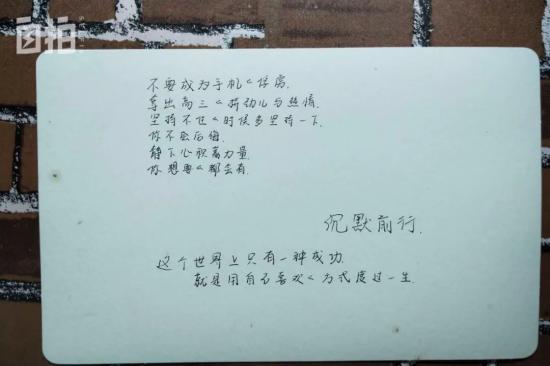 自拍
不要成为手机く俘虏.
拿出高三く劳动心与热情.
坚持不住く时候多坚持一下.
你不会后悔
静下心积蓄力量.
你想要く都会有.
沉默前行.
这个世界上只有一种成功.
就是用自己喜欢く方式度过一生.